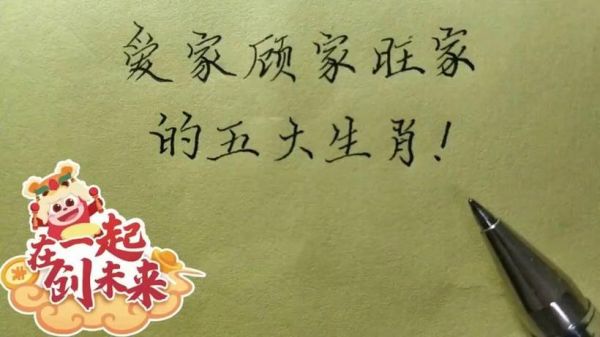 爱家顾家旺家
的五大生肖!
在一起
创未来